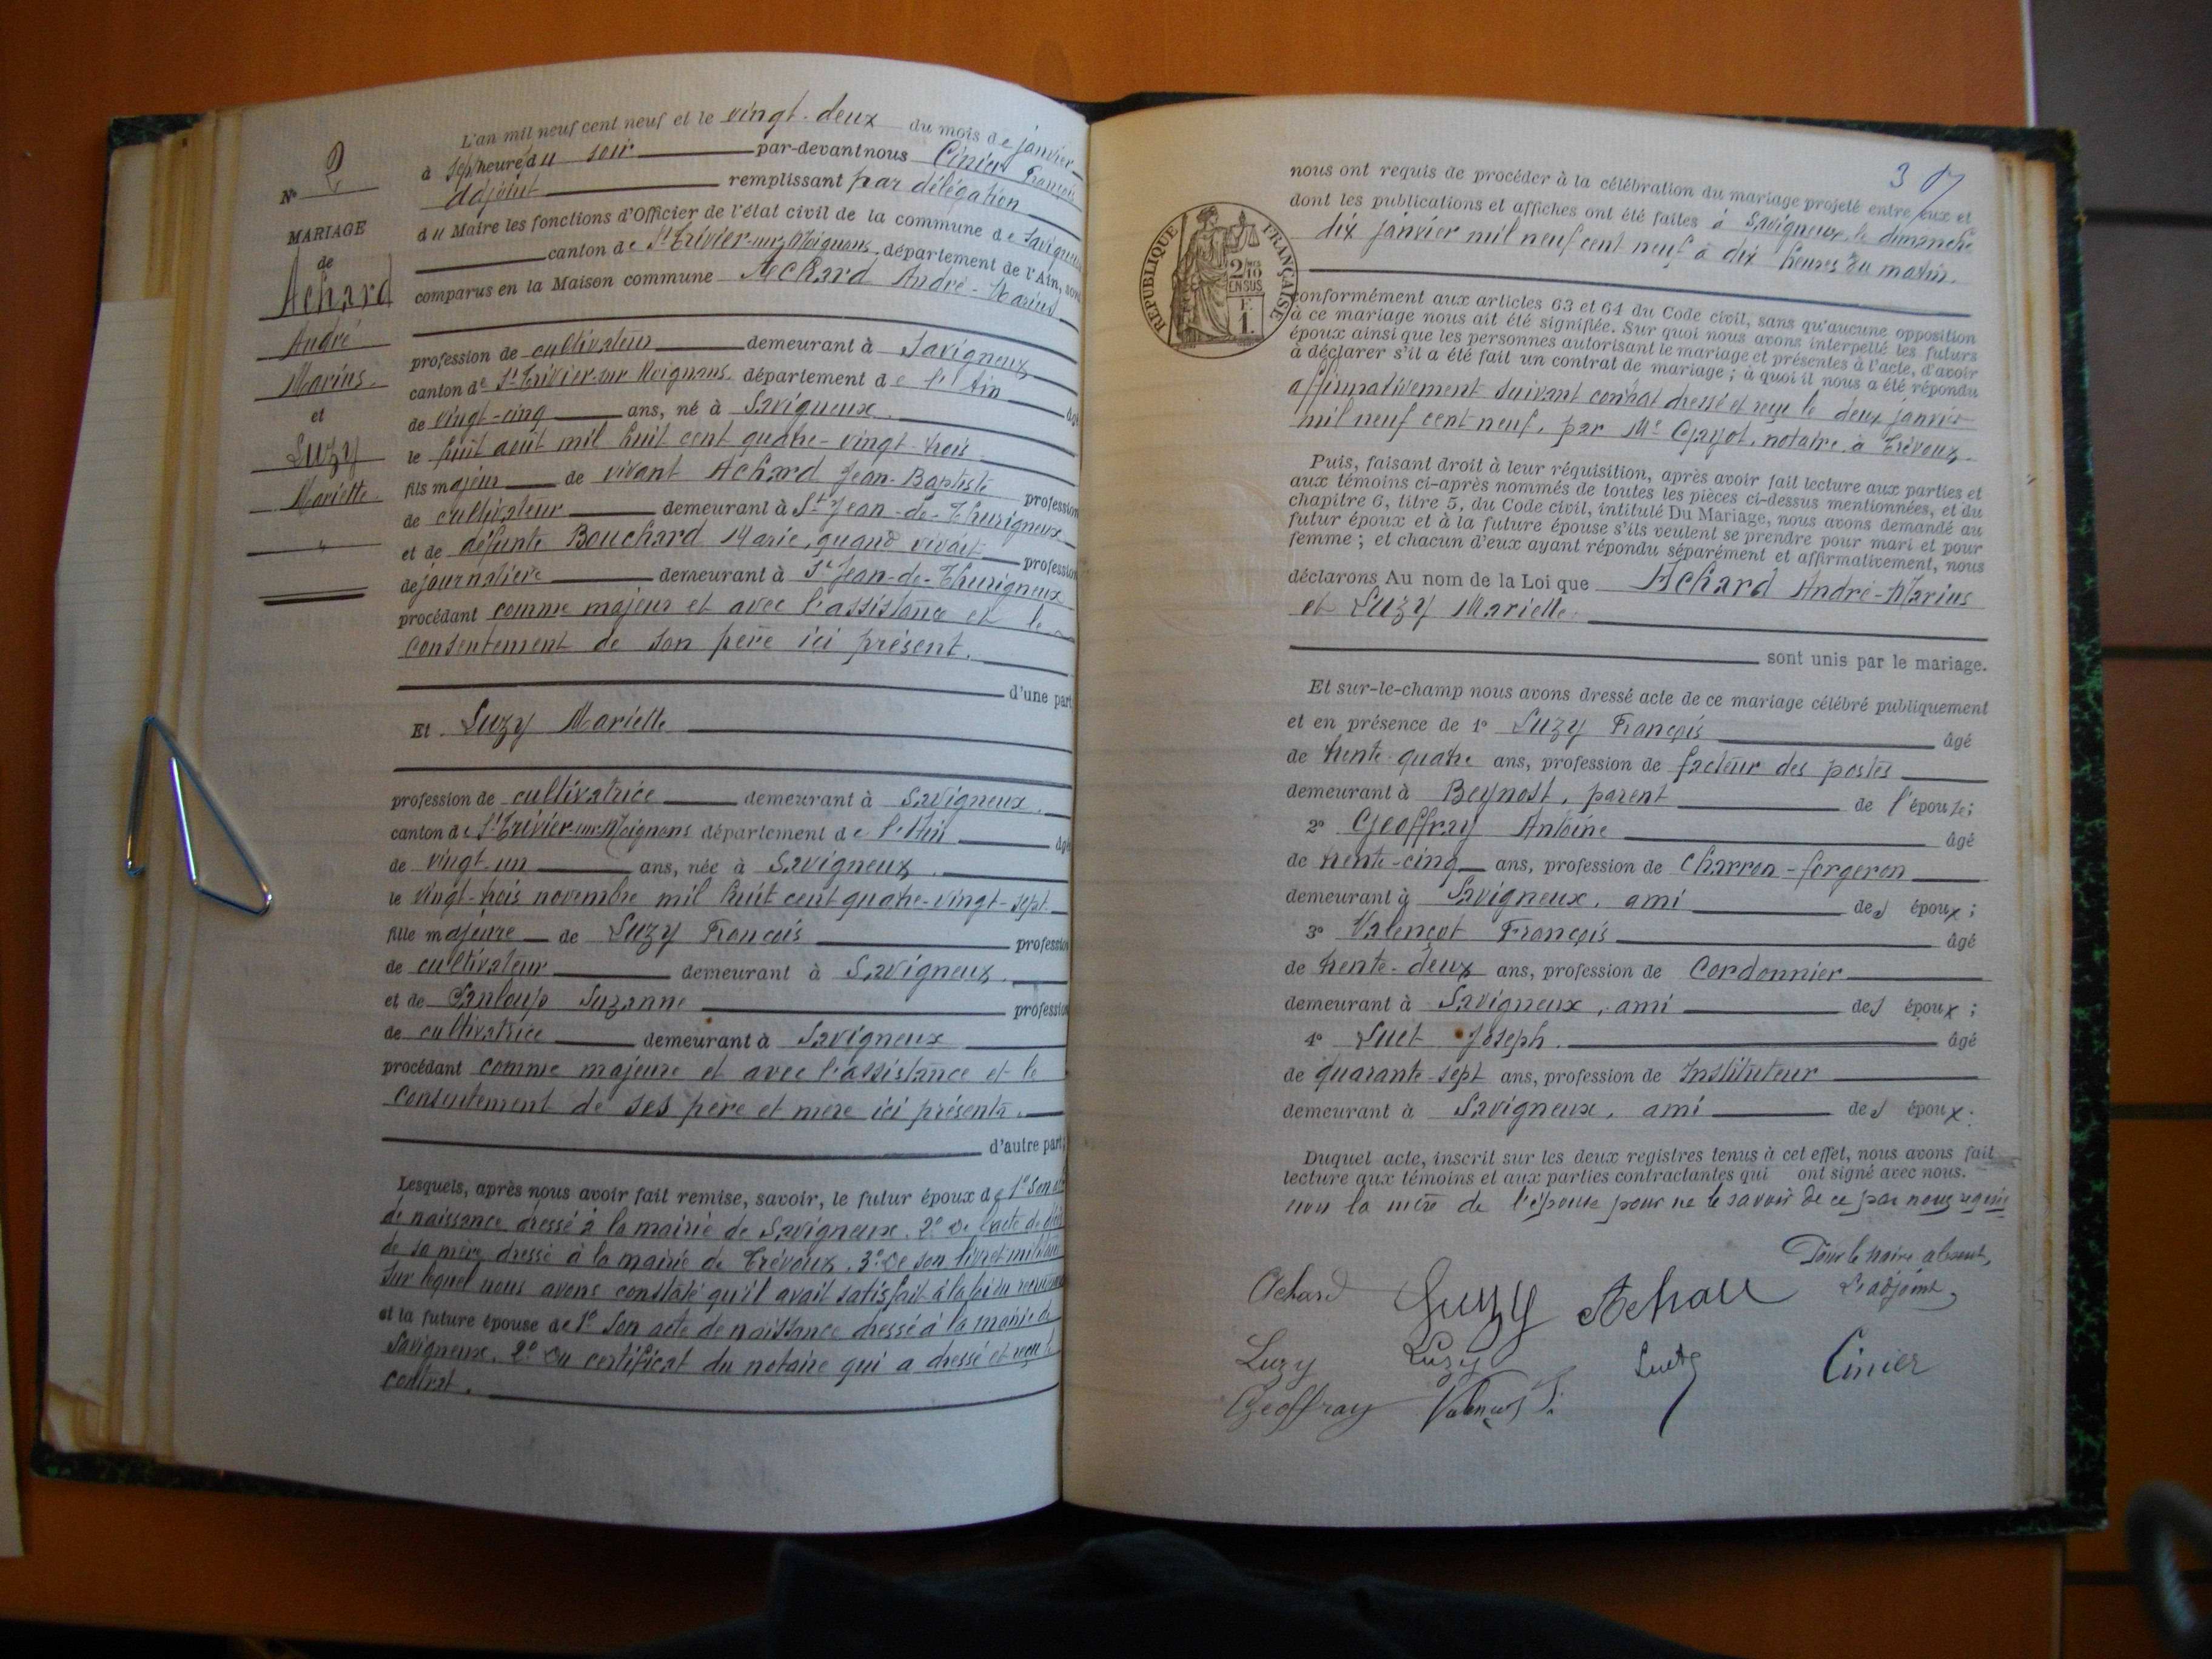 Nº 2
MARIAGE
de
Achard
André
Marius.
et
Luzy
Mariette.
L'an mil neuf cent neuf et le vingt-deux du mois de janvier
à sept heure du soir par-devant nous Cinier François
adjoint remplissant par délégation
du Maire les fonctions d'Officier de l'état civil de la commune de Savigneux
canton de St Trivier-sur-Moignans, département de l'Ain, sont
comparus en la Maison commune Achard André-Marius
profession de cultivateur demeurant à Savigneux
canton de St Trivier-sur-Moignans, département de l'Ain âgé
de vingt-cinq ans, né à Savigneux.
le huit août mil huit cent quatre-vingt-trois
fils majeur de vivant Achard Jean-Baptiste profession
de cultivateur demeurant à St Jean-de-Thurigneux
et de défunte Bouchard Marie, quand vivait profession
de journalière demeurant à St Jean-de-Thurigneux
procédant comme majeur et avec l'assistance et le
consentement de son père ici présent.
d'une part
Et Luzy Mariette
profession de cultivatrice demeurant à Savigneux.
canton de St Trivier-sur-Moignans département de l'Ain âgé
de vingt-un ans, née à Savigneux.
le vingt-trois novembre mil huit cent quatre-vingt-sept.
fille majeure de Luzy François profession
de cultivateur demeurant à Savigneux.
et de Suzanne profession
de cultivatrice demeurant à Savigneux
procédant comme majeure et avec l'assistance et le
consentement de ses père et mère ici présents.
d'autre part;
Lesquels, après nous avoir fait remise, savoir, le futur époux de 1º Son acte
de naissance dressé à la mairie de Savigneux. 2º De l'acte de décès
de sa mère dressé à la mairie de Trévoux. 3º De son livret militaire
sur lequel nous avons constaté qu'il avait satisfait à la loi du recrutement
et la future épouse de 1º Son acte de naissance dressé à la mairie de
Savigneux. 2º Du certificat du notaire qui a dressé et reçu le
contrat.
3
nous ont requis de procéder à la célébration du mariage projeté entre eux et
dont les publications et affiches ont été faites à Savigneux, le dimanche
dix janvier mil neuf cent neuf à dix heures du matin.
RÉPUBLIQUE FRANÇAISE
2/10
EN SUS
1F.
conformément aux articles 63 et 64 du Code civil, sans qu'aucune opposition
à ce mariage nous ait été signifiée. Sur quoi nous avons interpellé les futurs
époux ainsi que les personnes autorisant le mariage et présentes à l'acte, d'avoir
à déclarer s'il a été fait un contrat de mariage; à quoi il nous a été répondu
affirmativement suivant contrat dressé et reçu le deux janvier
mil neuf cent neuf, par Me Gayot, notaire à Trévoux.
Puis, faisant droit à leur réquisition, après avoir fait lecture aux parties et
aux témoins ci-après nommés de toutes les pièces ci-dessus mentionnées, et du
chapitre 6, titre 5, du Code civil, intitulé Du Mariage, nous avons demandé au
futur époux et à la future épouse s'ils veulent se prendre pour mari et pour
femme; et chacun d'eux ayant répondu séparément et affirmativement, nous
déclarons Au nom de la Loi que Achard André-Marius
et Luzy Mariette.
sont unis par le mariage.
Et sur-le-champ nous avons dressé acte de ce mariage célébré publiquement
et en présence de 1º Luzy François âgé
de trente-quatre ans, profession de facteur des postes
demeurant à Beynost, parent de l'épouse;
2º Geoffray Antoine âgé
de trente-cinq ans, profession de Charron-forgeron
demeurant à Savigneux, ami des époux;
3º Valençot François âgé
de trente-deux ans, profession de Cordonnier
demeurant à Savigneux, ami des époux;
4º Suet Joseph. âgé
de quarante-sept ans, profession de Instituteur
demeurant à Savigneux, ami des époux.
Duquel acte, inscrit sur les deux registres tenus à cet effet, nous avons fait
lecture aux témoins et aux parties contractantes qui ont signé avec nous.
non la mère de l'épouse pour ne le savoir de ce par nous requis
Pour le maire absent,
L'adjoint,
Achard Luzy Achard
Luzy Luzy Suet Cinier
Geoffray Valençot F.